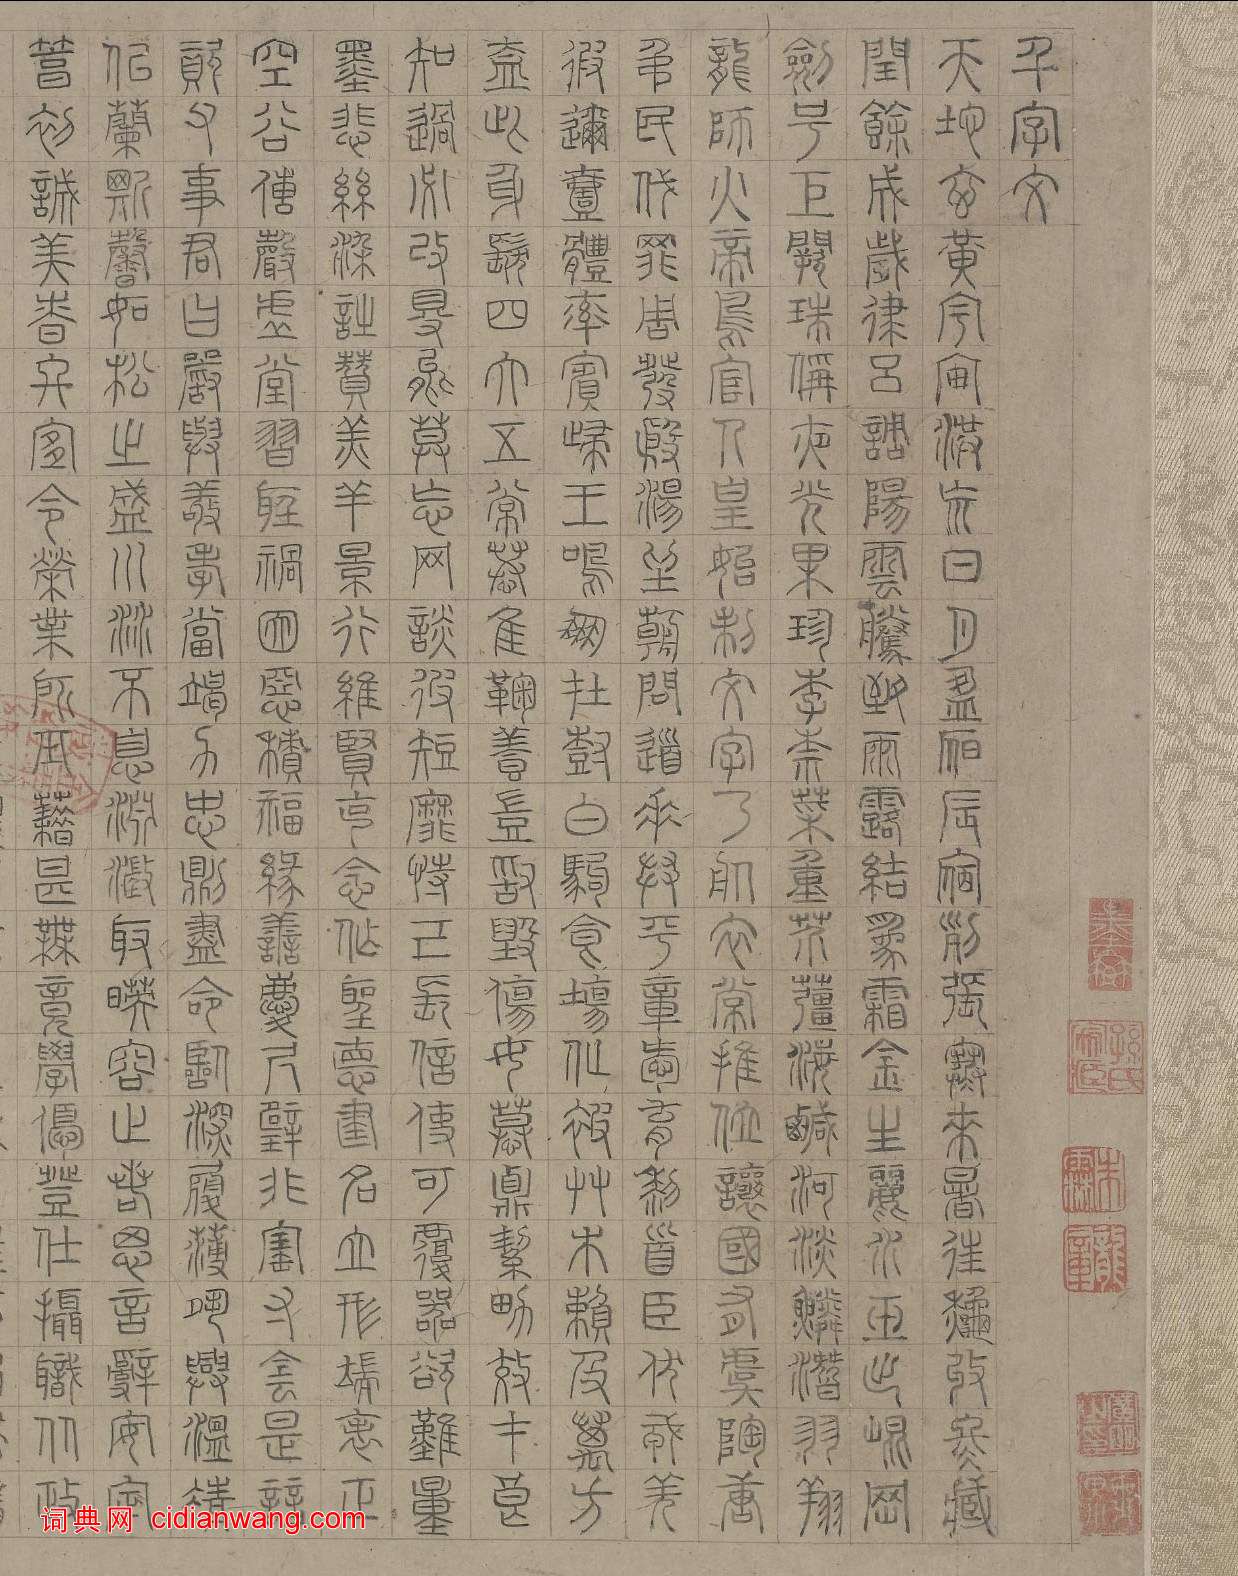 千字文
天地玄黃宇宙洪荒日月盈昃辰宿列張寒來暑往秋收冬藏
閏餘成歲律呂調陽雲騰致雨露結為霜金生麗水玉出崐岡
劍号巨闕珠稱夜光果珍李柰菜重芥薑海鹹河淡鱗潛羽翔
龍師火帝鳥官人皇始制文字乃服衣裳推位讓國有虞陶唐
弔民伐罪周發殷湯坐朝問道垂拱平章愛育黎首臣伏戎羌
遐邇壹體率賓歸王鳴鳳在樹白駒食場化被草木賴及萬方
蓋此身髮四大五常恭惟鞠養豈敢毀傷女慕貞絜男效才良
知過必改得能莫忘罔談彼短靡恃己長信使可覆器欲難量
墨悲絲染詩讚羔羊景行維賢克念作聖德建名立形端表正
空谷傳聲虛堂習聽禍因惡積福緣善慶尺璧非寶寸陰是競
資父事君曰嚴與敬孝當竭力忠則盡命臨深履薄夙興溫凊
似蘭斯馨如松之盛川流不息淵澄取暎容止若思言辭安定
篤初誠美慎終宜令榮業所基藉甚無竟學優登仕攝職從政
词典网 cidianwang.com